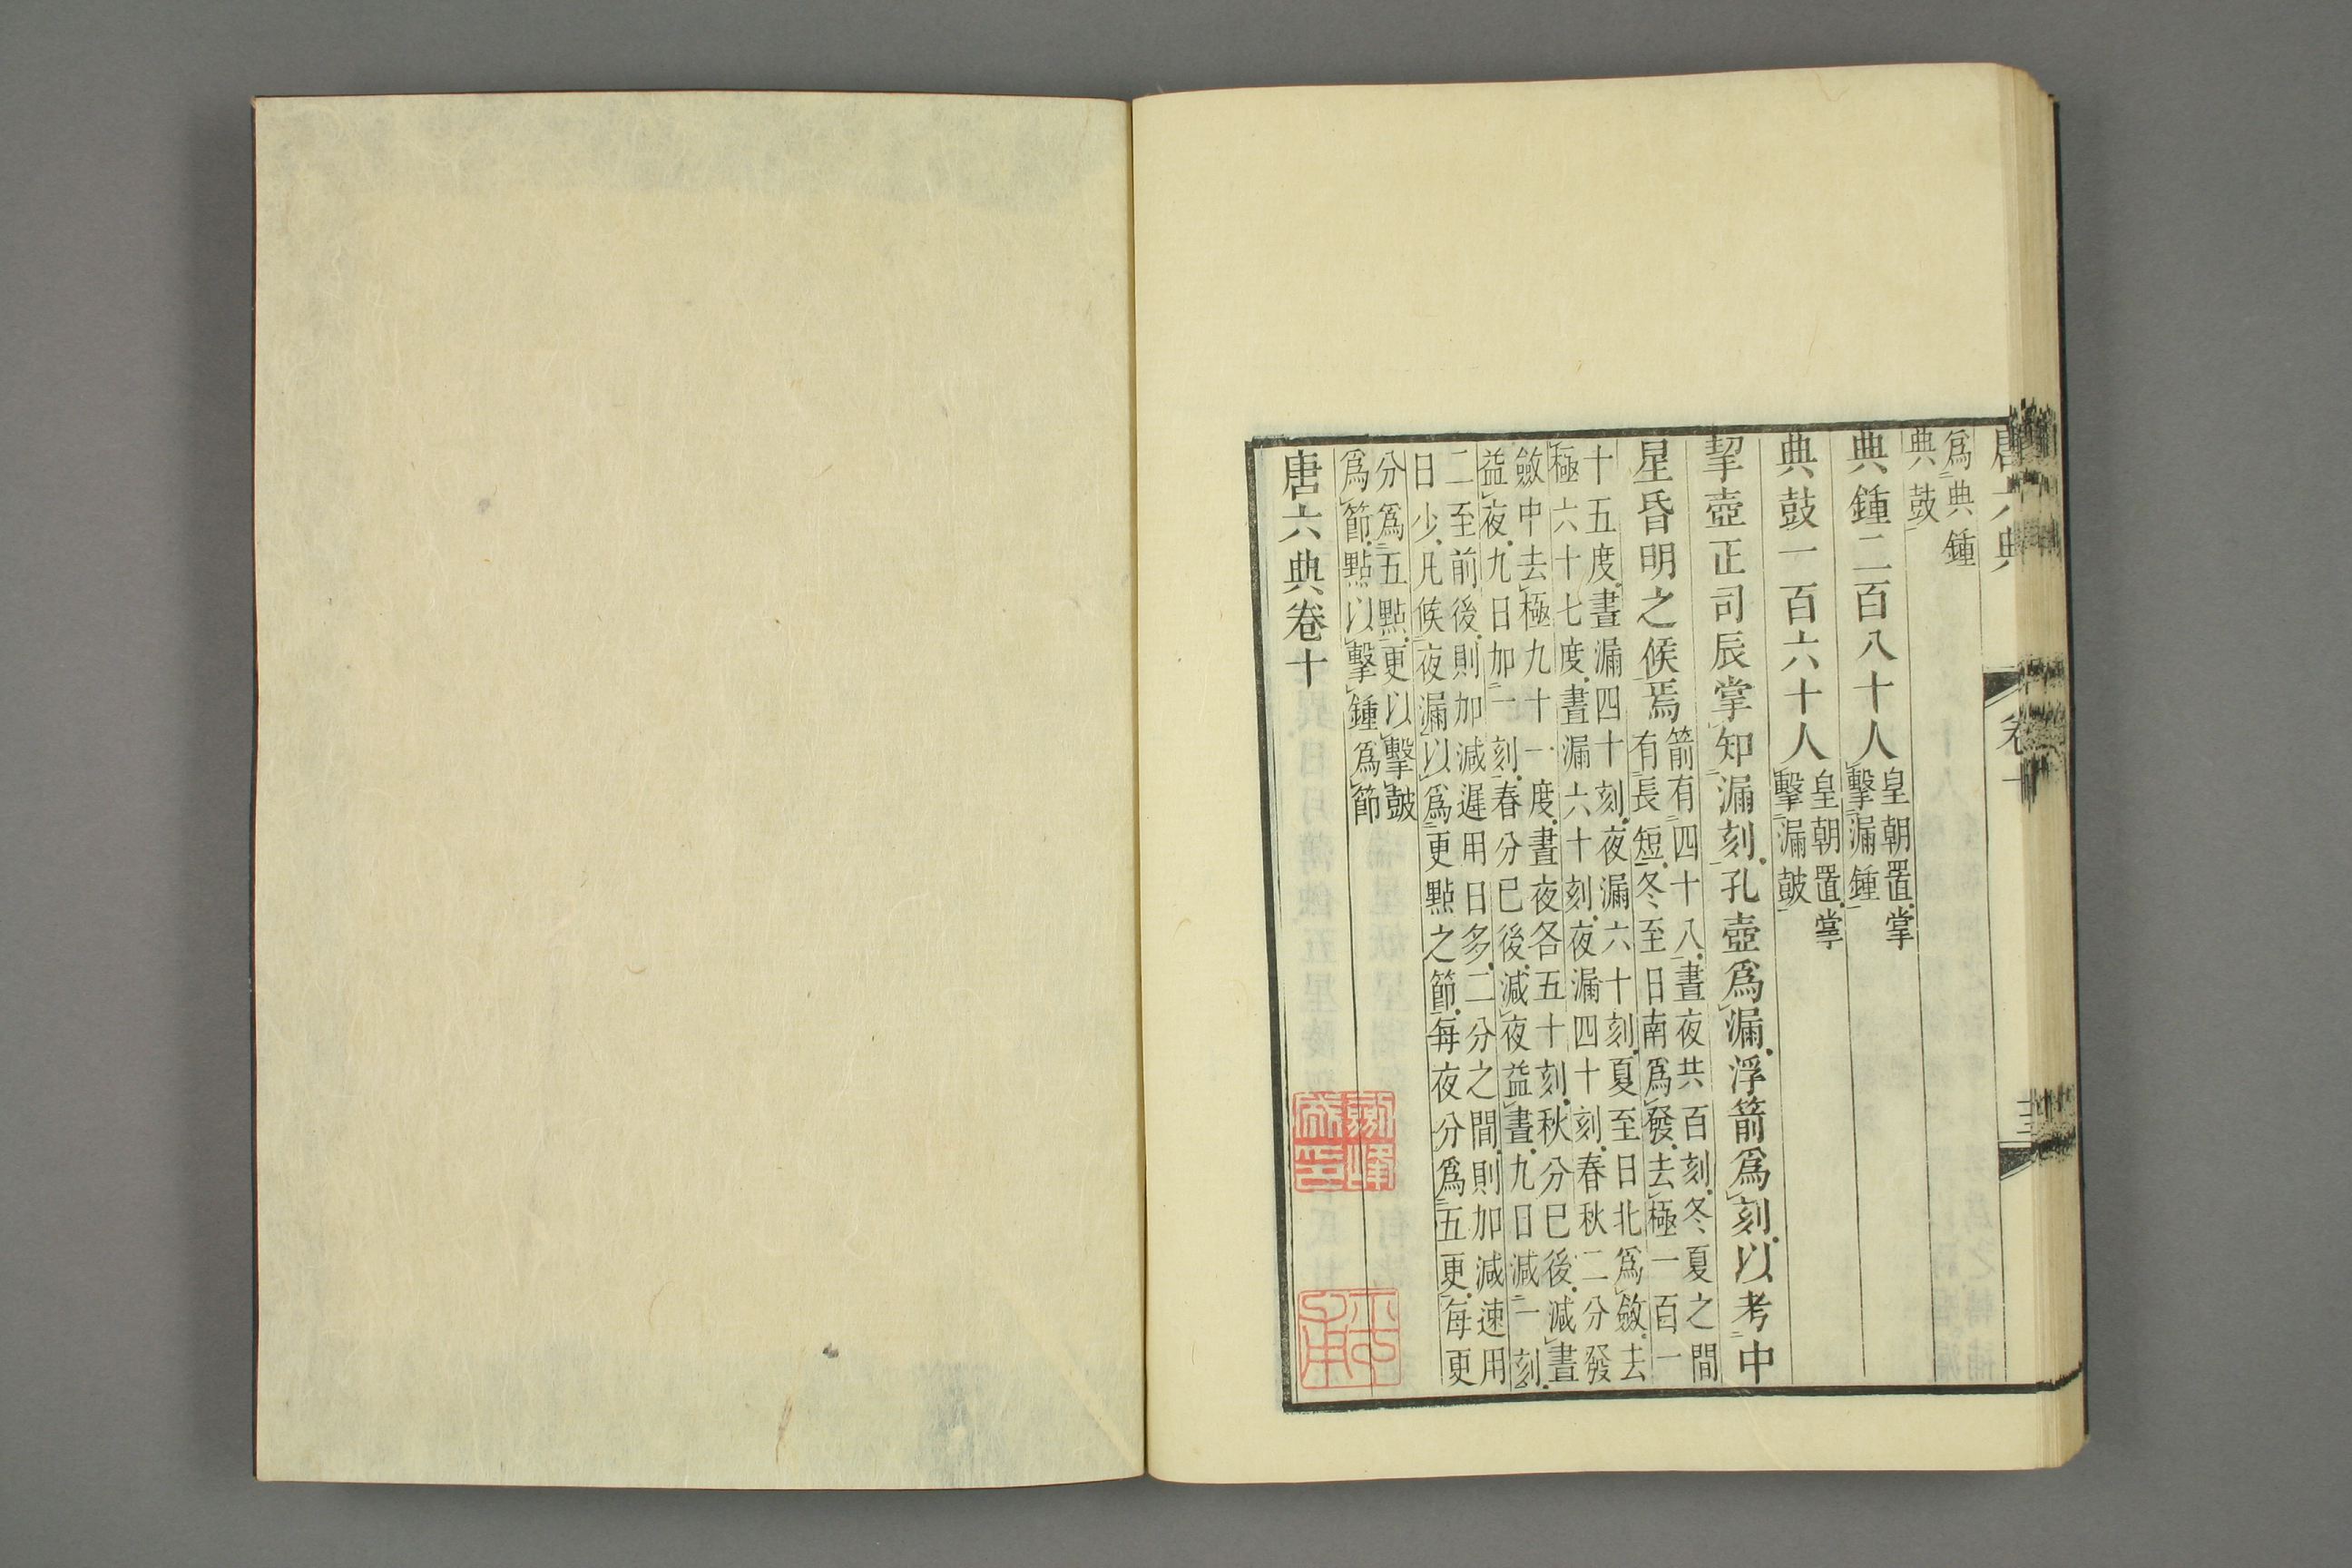 唐六典 卷十
爲典鍾
典鼓
典鍾二百八十人皇朝置掌
擊漏鍾
典鼓一百六十人皇朝置掌
擊漏皷
挈壺正司辰掌知漏刻孔壺爲漏浮箭爲刻以考中
星昏明之候焉箭有四十八晝夜共百刻冬夏之間
有長短冬至日南爲發去極一百一
十五度晝漏四十刻夜漏六十刻夏至日北爲斂去
極六十七度晝漏六十刻夜漏四十刻春秋二分發
斂中去極九十一度晝夜各五十刻秋分巳後減晝
益夜九日加一刻春分巳後減夜益晝九日減一刻
二至前後則加減遲用日多二分之間則加減速用
日少凡候夜漏以爲更點之節每夜分爲五更每更
分爲五點更以擊皷
爲節點以擊鍾爲節
唐六典卷十